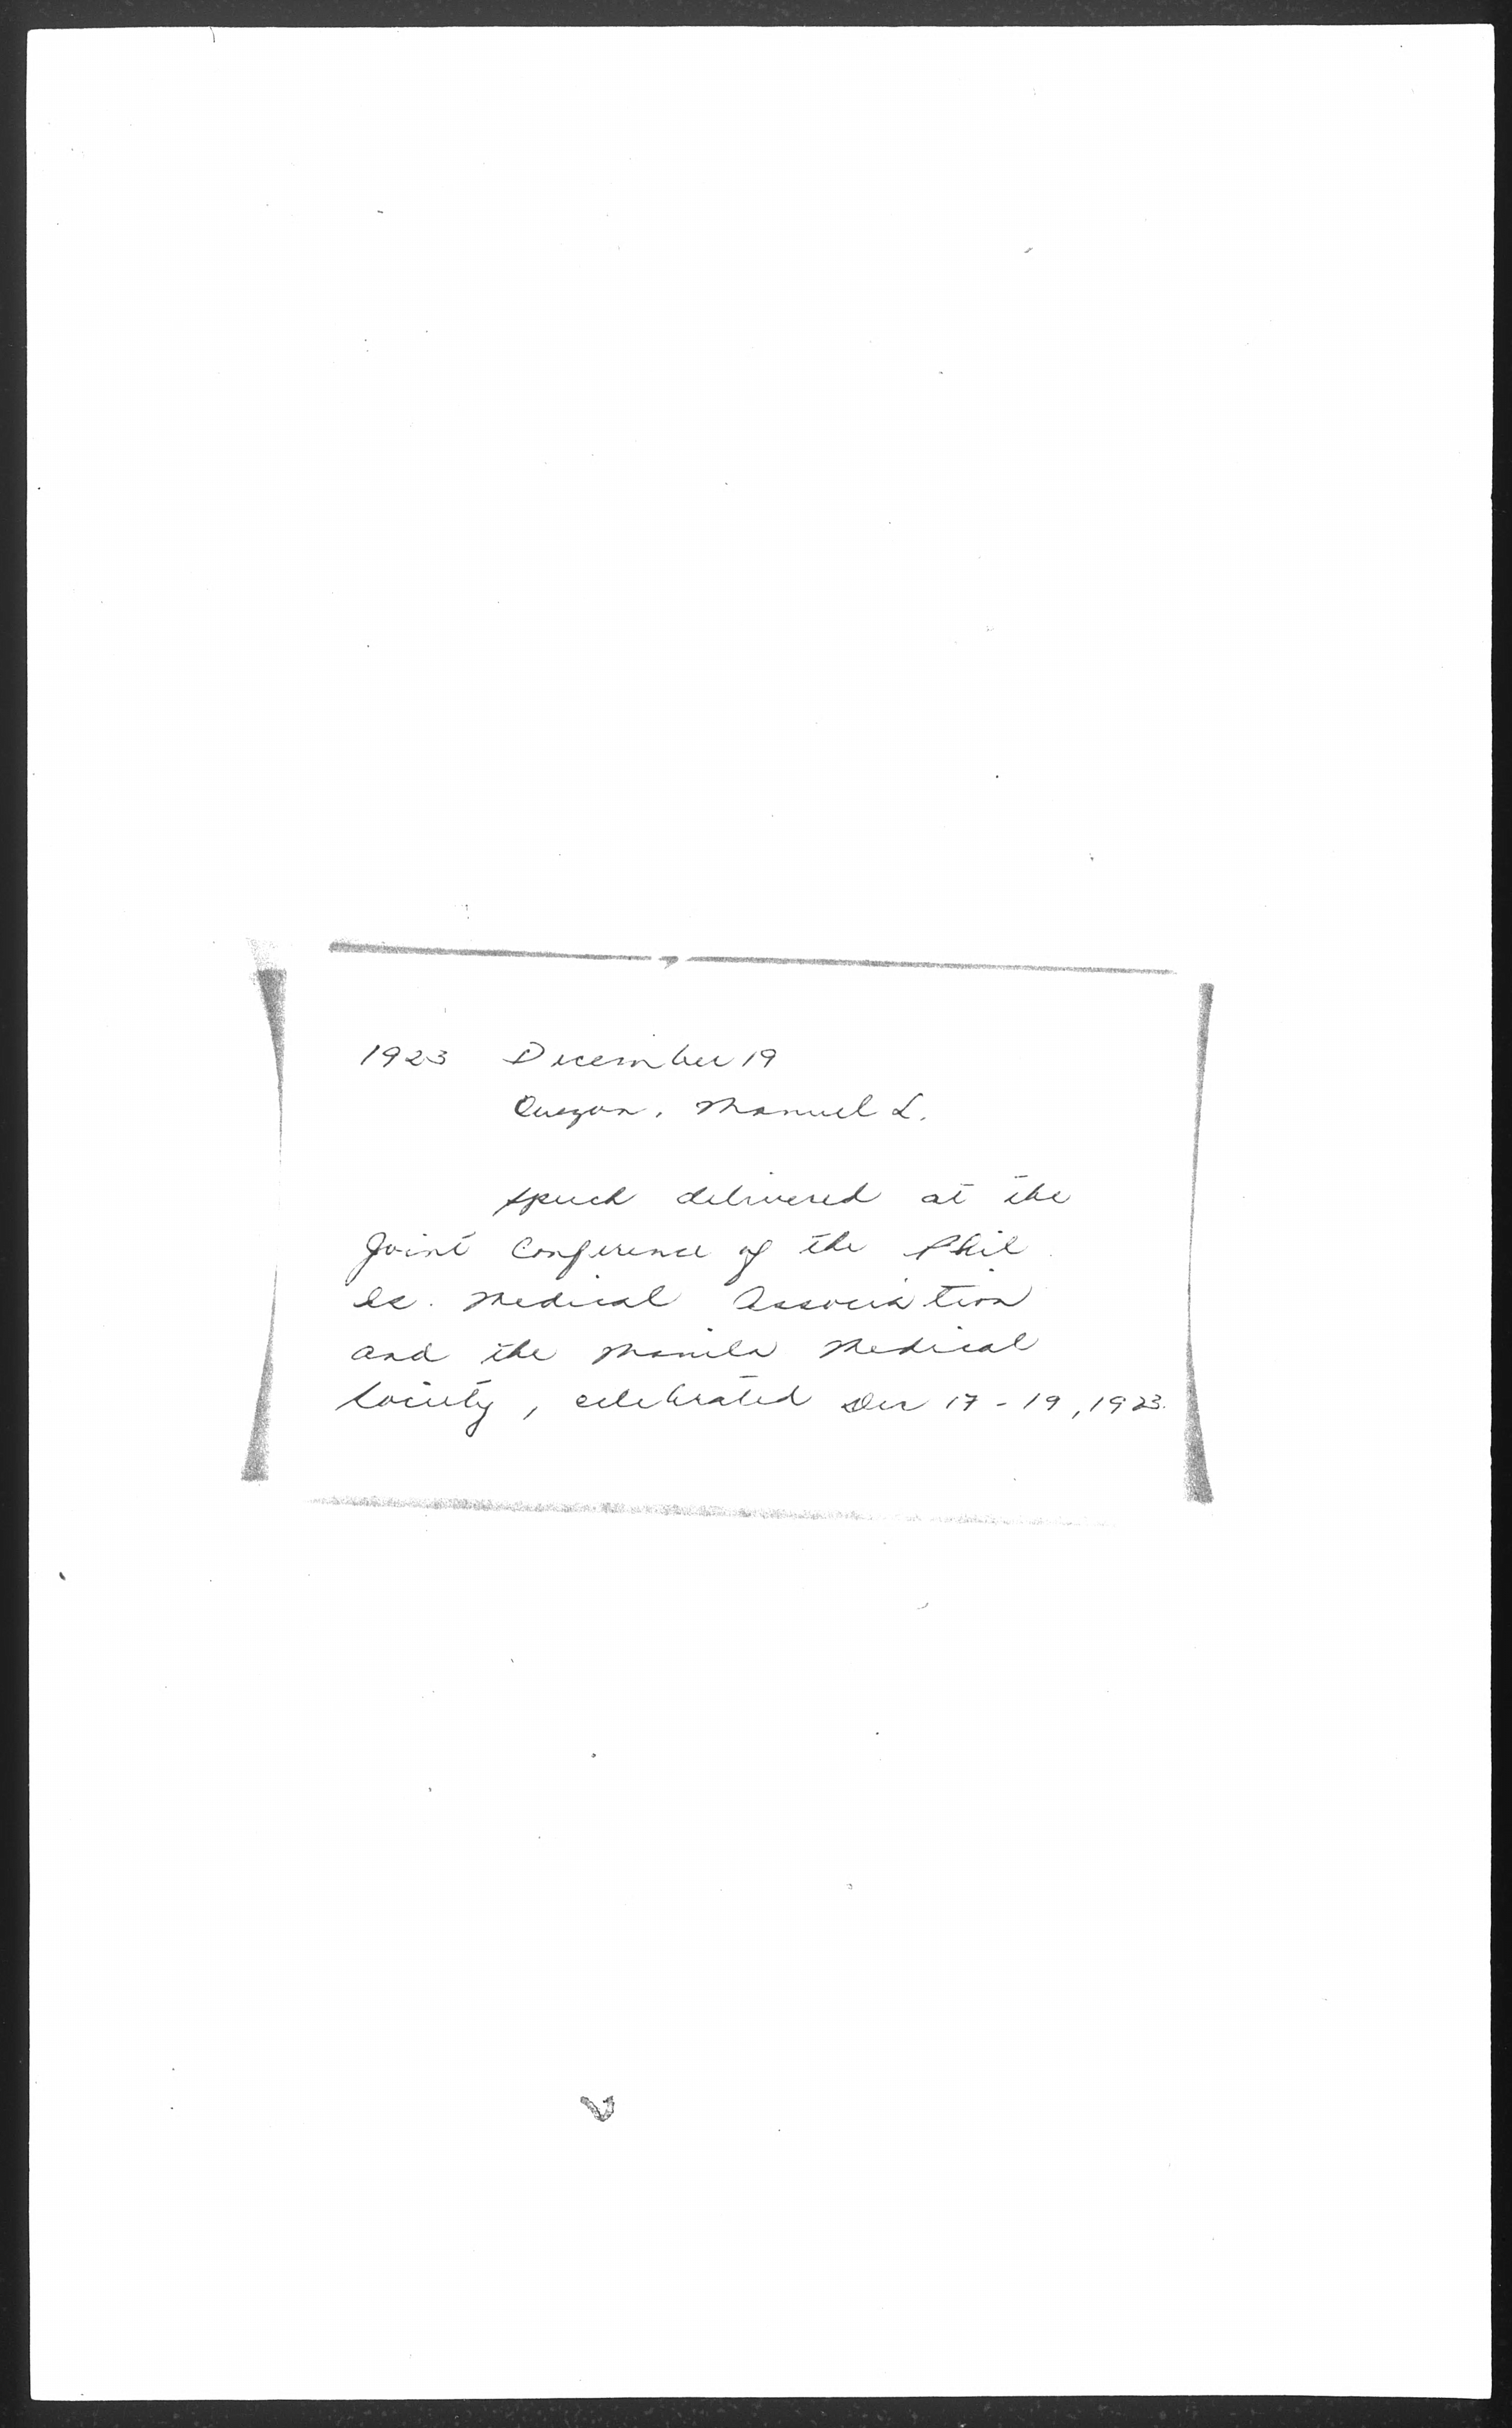 1923 December 19
Quezon, Manuel L.
Speech delivered at the
Joint Conference of the Phil.
Is. Medical Association
and the Manila Medical
Society, celebrated Dec 17-19, 1923.